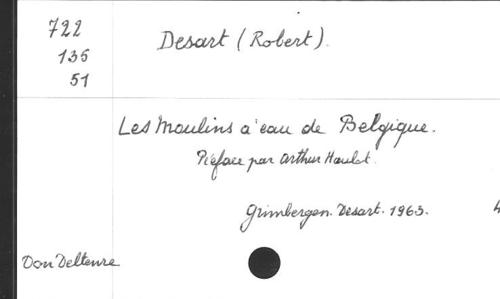 722
135
51
Desart (Robert).
Les Moulins à eau de Belgique.
Préface par Arthur Haulot.
Grimbergen. Desart. 1963.
Don Deltenre